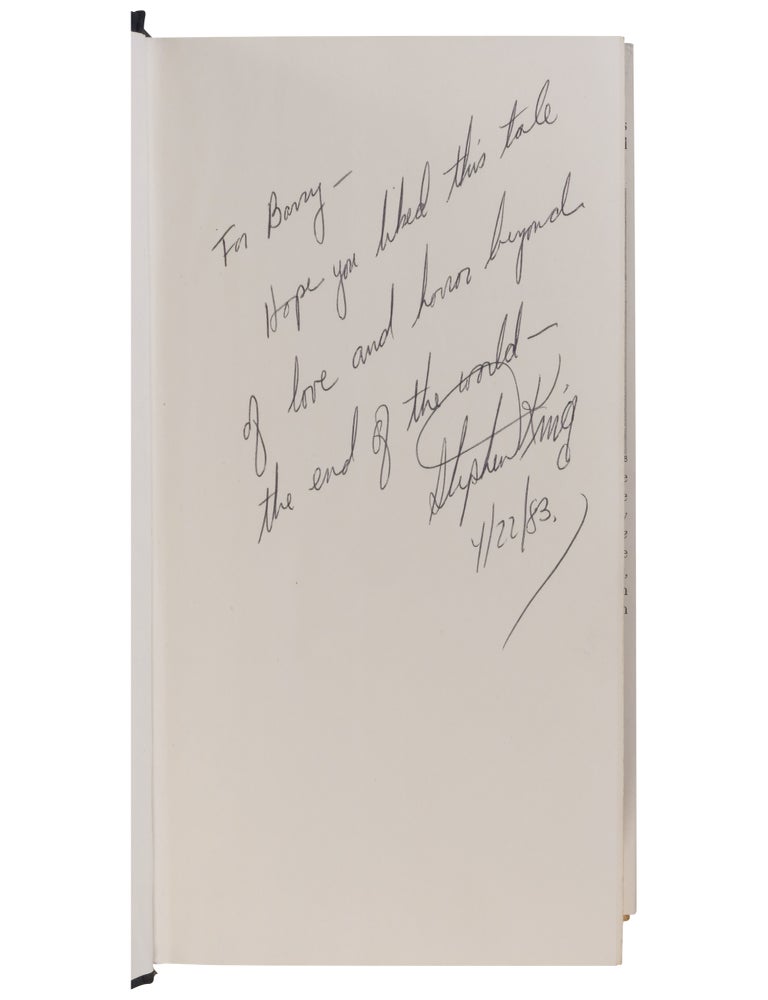 For Barry—
Hope you liked this tale
of love and horror beyond
the end of the world—
Stephen King
4/22/83.